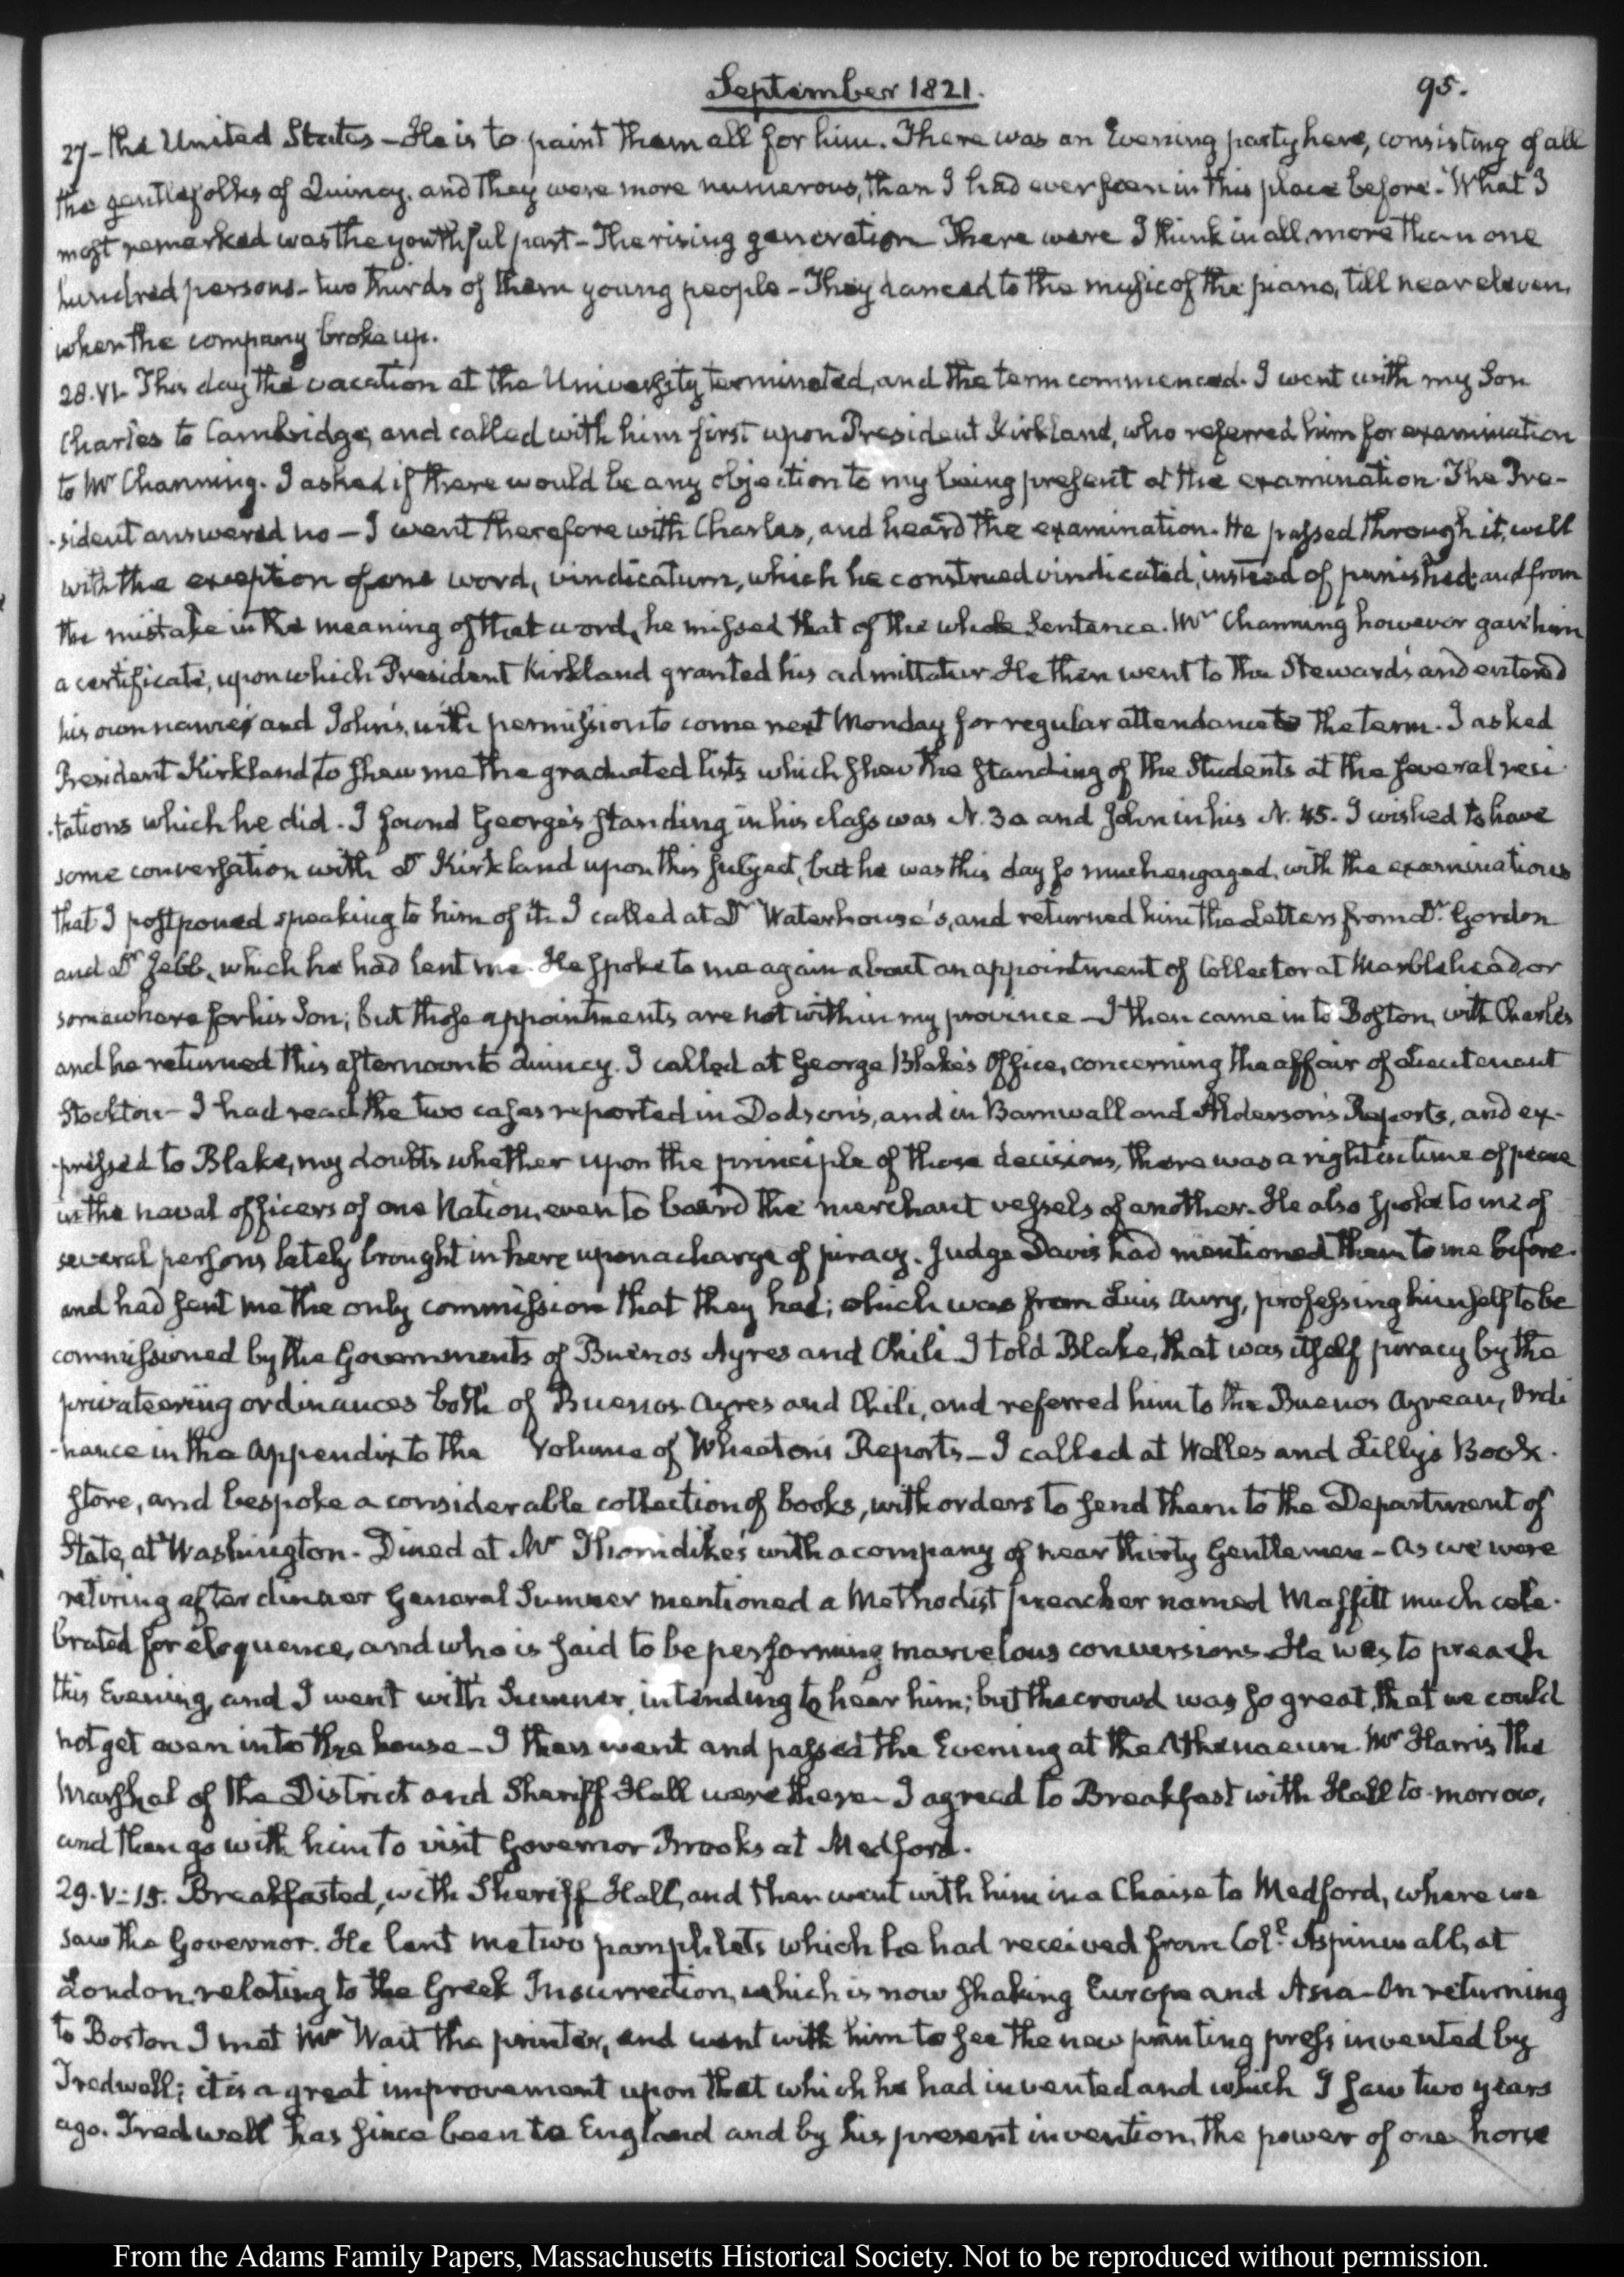 September 1821.
95.
27 - the United States - He is to paint them all for him. There was an Evening party here, consisting of all
the gentlefolks of Quincy. and they were more numerous, than I had ever seen in this place before. What I
most remarked was the youthful part - The rising generation There were I think in all, more than one
hundred persons - two thirds of them young people - They danced to the music of the piano, till near eleven,
when the company broke up.
28. VI. This day the vacation at the University terminated, and the term commenced. I went with my Son
Charles to Cambridge, and called with him first upon President Kirkland, who referred him for examination
to Mr Channing. I asked if there would be any objection to my being present at the examination. The Pre-
-sident answered no - I went therefore with Charles, and heard the examination. He passed through it, well
with the exception of one word, vindicatum, which he construed vindicated, instead of punished: and from
the mistake in the meaning of that word, he missed that of the whole sentence. Mr Channing however gave him
a certificate, upon which President Kirkland granted his admittatur. He then went to the Steward's and entered
his own name and John's, with permission to come next Monday for regular attendance the term. I asked
President Kirkland, to shew me the graduated lists which shew the standing of the Students at the several reci-
-tations which he did. I found George's standing in his class was N. 30 and John in his N. 45. I wished to have
some conversation with Dr Kirkland upon this subject, but he was this day so much engaged, with the examinations
that I postponed speaking to him of it. I called at Dr Waterhouse's, and returned him the Letters from Dr Gordon
and Dr Jebb, which he had lent me. He spoke to me again about an appointment of Collector at Marblehead, or
somewhere for his Son; but those appointments are not within my province - I then came in to Boston, with Charles
and he returned this afternoon to Quincy. I called at George Blake's Office, concerning the affair of Lieutenant
Stockton - I had read the two cases reported in Dodson's, and in Barnwall and Alderson's Reports, and ex-
-pressed to Blake, my doubts whether upon the principle of those decisions, there was a right in time of peace
in the naval officers of one Nation, even to board the merchant vessels of another. He also spoke to me of
several persons lately brought in here upon a charge of piracy. Judge Davis had mentioned them to me before
and had sent me the only commission that they had; which was from Luis Aury, professing himself to be
commissioned by the Governments of Buenos Ayres and Chili. I told Blake, that was itself piracy by the
privateering ordinances both of Buenos Ayres and Chili, and referred him to the Buenos Ayrean, Ordi
-nance in the Appendix to the Volume of Wheaton's Reports - I called at Welles and Lilly's Book-
store, and bespoke a considerable collection of books, with orders to send them to the Department of
State, at Washington - Dined at Mr Thorndike's with a company of near thirty Gentlemen - As we were
retiring after dinner General Sumner mentioned a Methodist preacher named Maffitt much cele-
brated for eloquence, and who is said to be performing marvelous conversions. He was to preach
this Evening, and I went with Sumner, intending to hear him; but the crowd was so great, that we could
not get even into the house - I then went and passed the Evening at the Athenaeum. Mr Harris, the
Marshal of the District and Sheriff Hall were there - I agreed to Breakfast with Hall to-morrow,
and then go with him to visit Governor Brooks at Medford.
29. V:15. Breakfasted, with Sheriff Hall, and then went with him in a Chaise to Medford, where we
saw the Governor. He lent me two pamphlets which he had received from Coll. Aspinwall, at
London, relating to the Greek Insurrection, which is now shaking Europe and Asia - On returning
to Boston I met Mr Wait the printer, and went with him to see the new printing press invented by
Tredwell; it is a great improvement upon that which he had invented and which I saw two years
ago. Tredwell has since been to England and by his present invention, the power of one horse
From the Adams Family Papers, Massachusetts Historical Society. Not to be reproduced without permission.